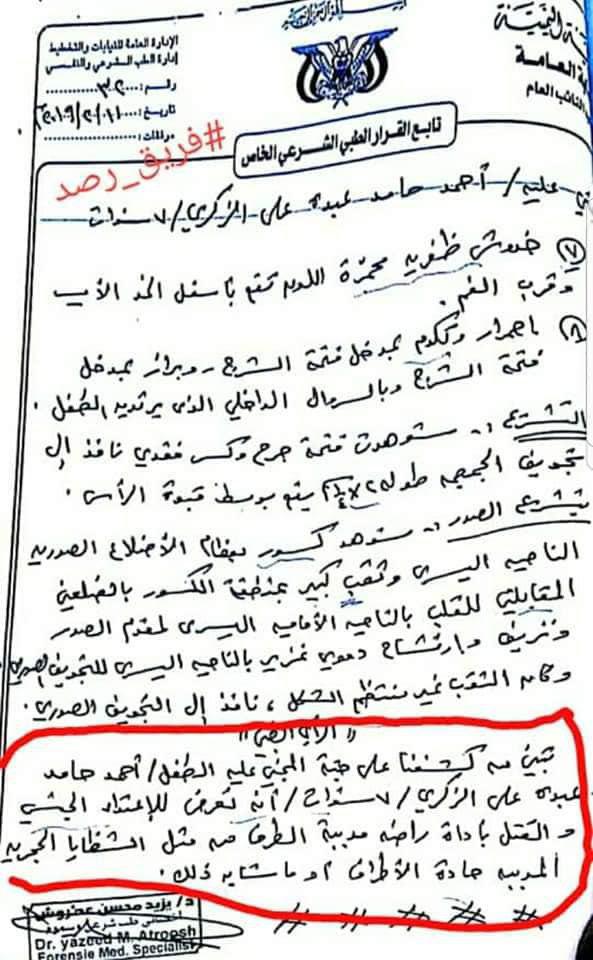 الإدارة العامة للنيابات والتخطيط
إدارة الطب الشرعي والنفسي
رقم:
تاريخ: ٢٠١٩/٢/١١
مرفقات:
اليمنية
العامة
النائب العام
#فريق_رصد
تابع القرار الطبي الشرعي الخاص
عليه / أحمد حامد عبده على الزكري / ٧ سنوات
٧ خدوش ظفريه محمرة اللون تقع بأسفل الخد الأيسر
وقرب الفم.
٨ احمرار وتكدم بمدخل فتحة الشرج - وبراز بمدخل
فتحة الشرج وبالسروال الداخلي الذي يرتديه الطفل.
التشريح :- شوهدت فتحة جرح وكسر فقدي نافذ إلى
تجويف الجمجمه طوله يقع بوسط قبوة الرأس.
تشريح الصدر :- شوهد كسور بعظام الأضلاع الصدريه
الناحيه اليسرى وثقب كبير بمنطقة الكسور بالضلعين
المقابلين للقلب بالناحيه الأماميه اليسرى لمقدم الصدر
ونزيف وارتشاح دموي غزير بالناحيه اليسرى للتجويف الصدري
وكان الثقب غير منتظم الشكل، نافذ إلى التجويف الصدري.
"الرأي الفني"
تبين من كشفنا على جثة المجني عليه الطفل / أحمد حامد
عبده على الزكري / ٧ سنوات / أنه تعرض للإعتداء الجنسي
والقتل بأداة راضه مدببة الطرف من مثل الشظايا الحجريه
المدببه حادة الأطراف أو ما شابه ذلك.
د/ يزيد محسن عطروش
Dr. yazeed M. Atroosh
Forensie Med. Specialist